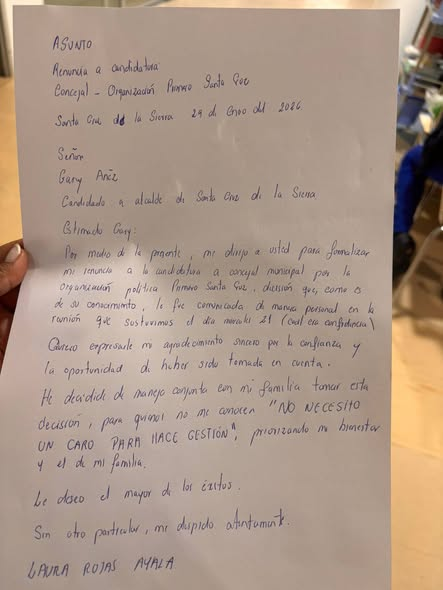 ASUNTO
Renuncia a candidatura
Concejal - Organización Primero Santa Cruz
Santa Cruz de la Sierra 29 de Enero del 2026
Señor
Gary Añez
Candidado a alcalde de Santa Cruz de la Sierra.
Estimado Gary:
Por medio de la presente, me dirijo a usted para formalizar
mi renuncia a la candidatura a concejal municipal por la
organización política Primero Santa Cruz, decisión que, como es
de su conocimiento, le fue comunicada de manera personal en la
reunión que sostuvimos el día miercoles 21 (cual era confidencial)
Quiero expresarle mi agradecimiento sincero por la confianza y
la oportunidad de haber sido tomada en cuenta.
He decidido de manera conjunta con mi familia tomar esta
decisión, para quienes no me conocen "NO NECESITO
UN CARO PARA HACE GESTIÓN", priorizando mi bienestar
y el de mi familia.
Le deseo el mayor de los éxitos.
Sin otro particular, me despido atentamente.
LAURA ROJAS AYALA